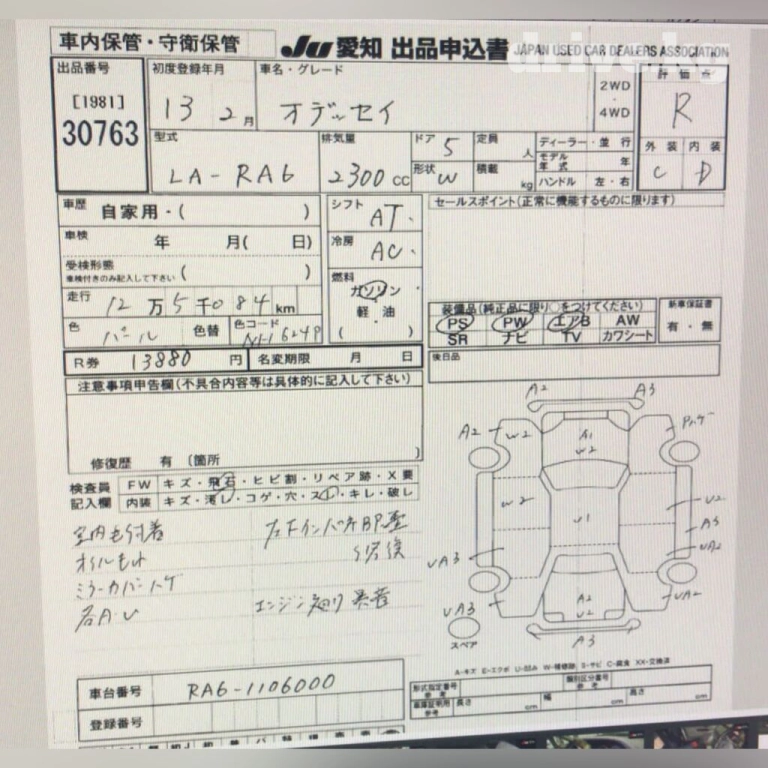 車内保管・守衛保管
JU 愛知 出品申込書 JAPAN USED CAR DEALERS ASSOCIATION
drive.kg
出品番号 初度登録年月 車名・グレード 2WD・4WD 評価点
[1981] 13 2月 オデッセイ R
30763
型式 排気量 ドア 5 定員 人 ディーラー・並行 外装 内装
LA-RA6 2300cc 形状 W 積載 kg モデル年式 年 C D
ハンドル 左・右
車歴 自家用・( ) シフト AT. セールスポイント(正常に機能するものに限ります)
車検 年 月( 日) 冷房 AC.
受検形態 ( )
車検付きのみ記入して下さい
燃料 ガソリン・軽油 ( )
走行 12万5千084km
色 パール 色替 色コード NH624P
装備品(純正品に限り○をつけてください) 新車保証書
PS PW エアB AW 有・無
SR ナビ TV カワシート
R券 13880円 名変期限 月 日 後日品
注意事項申告欄(不具合内容等は具体的に記入して下さい)
修復歴 有 (箇所 )
検査員記入欄 FW キズ・飛石・ヒビ割・リペア跡・X要
内装 キズ・汚レ・コゲ・穴・スレ・キレ・破レ
室内毛付着
オイルもれ
ミラーカバーハゲ
各A.U
エンジン廻り異音
A2 A3
A2 W2 A1 W2
W2 U1 U2
A3
UA3 UA2
UA3 A2 U2 UA2
スペア A3
A-キズ E-エクボ U-凹み W-補修跡 S-サビ C-腐食 XX-交換済
車台番号 RA6-1106000
登録番号
形式指定番号 参考 類別区分番号 参考
車庫証明用 参考 長さ cm 幅 cm 高さ cm